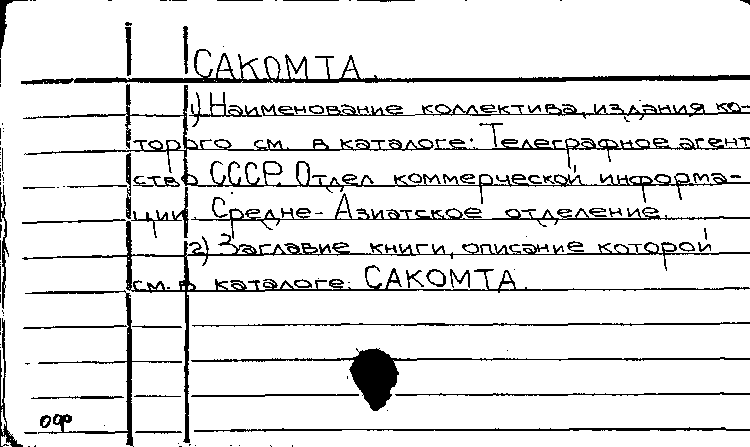 САКОМТА.
1) Наименование коллектива, издания ко-
торого см. в каталоге: Телеграфное агент
ство СССР. Отдел коммерческой информа-
ции. Средне-Азиатское отделение.
2) Заглавие книги, описание которой
см. в каталоге: САКОМТА.